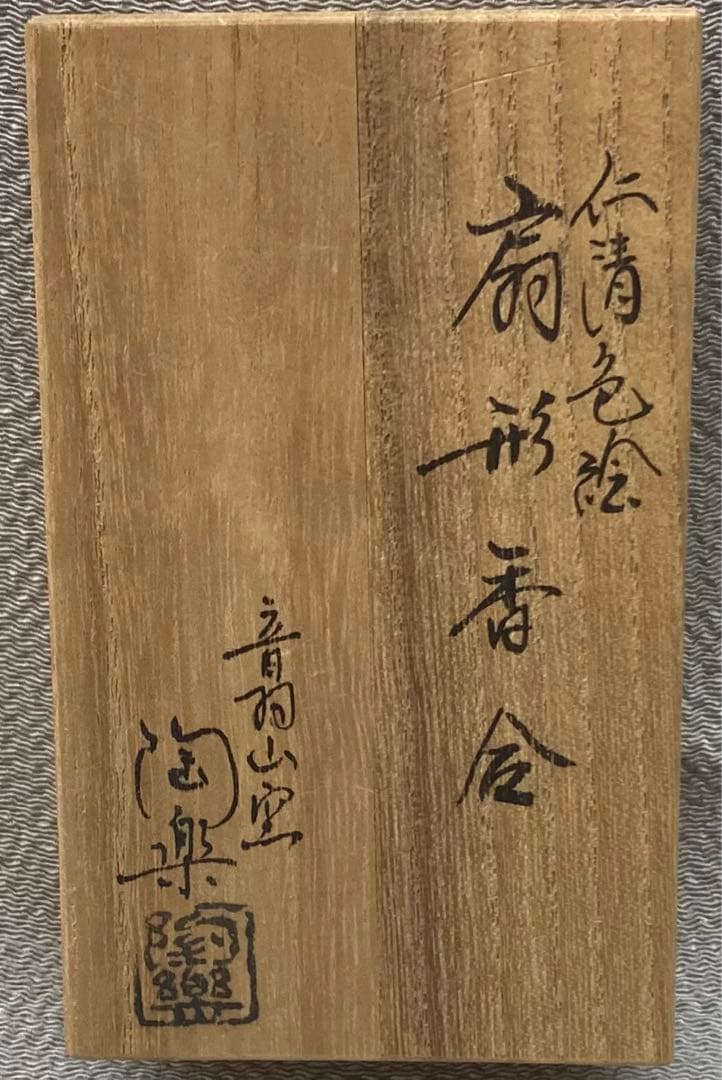 仁清色絵
扇形香合
音羽山窯
陶楽
陶樂